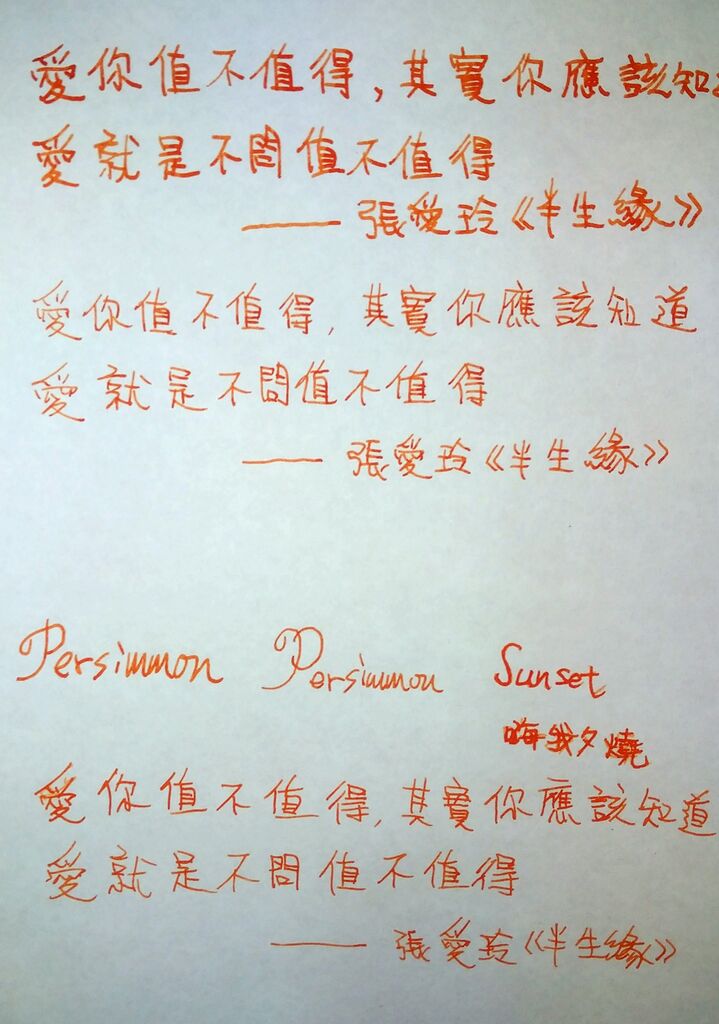 愛你值不值得,其實你應該知
愛就是不問值不值得
——張愛玲《半生緣》
愛你值不值得,其實你應該知道
愛就是不問值不值得
——張愛玲《半生緣》
Persimmon Persimmon Sunset
夕燒
愛你值不值得,其實你應該知道
愛就是不問值不值得
——張愛玲《半生緣》